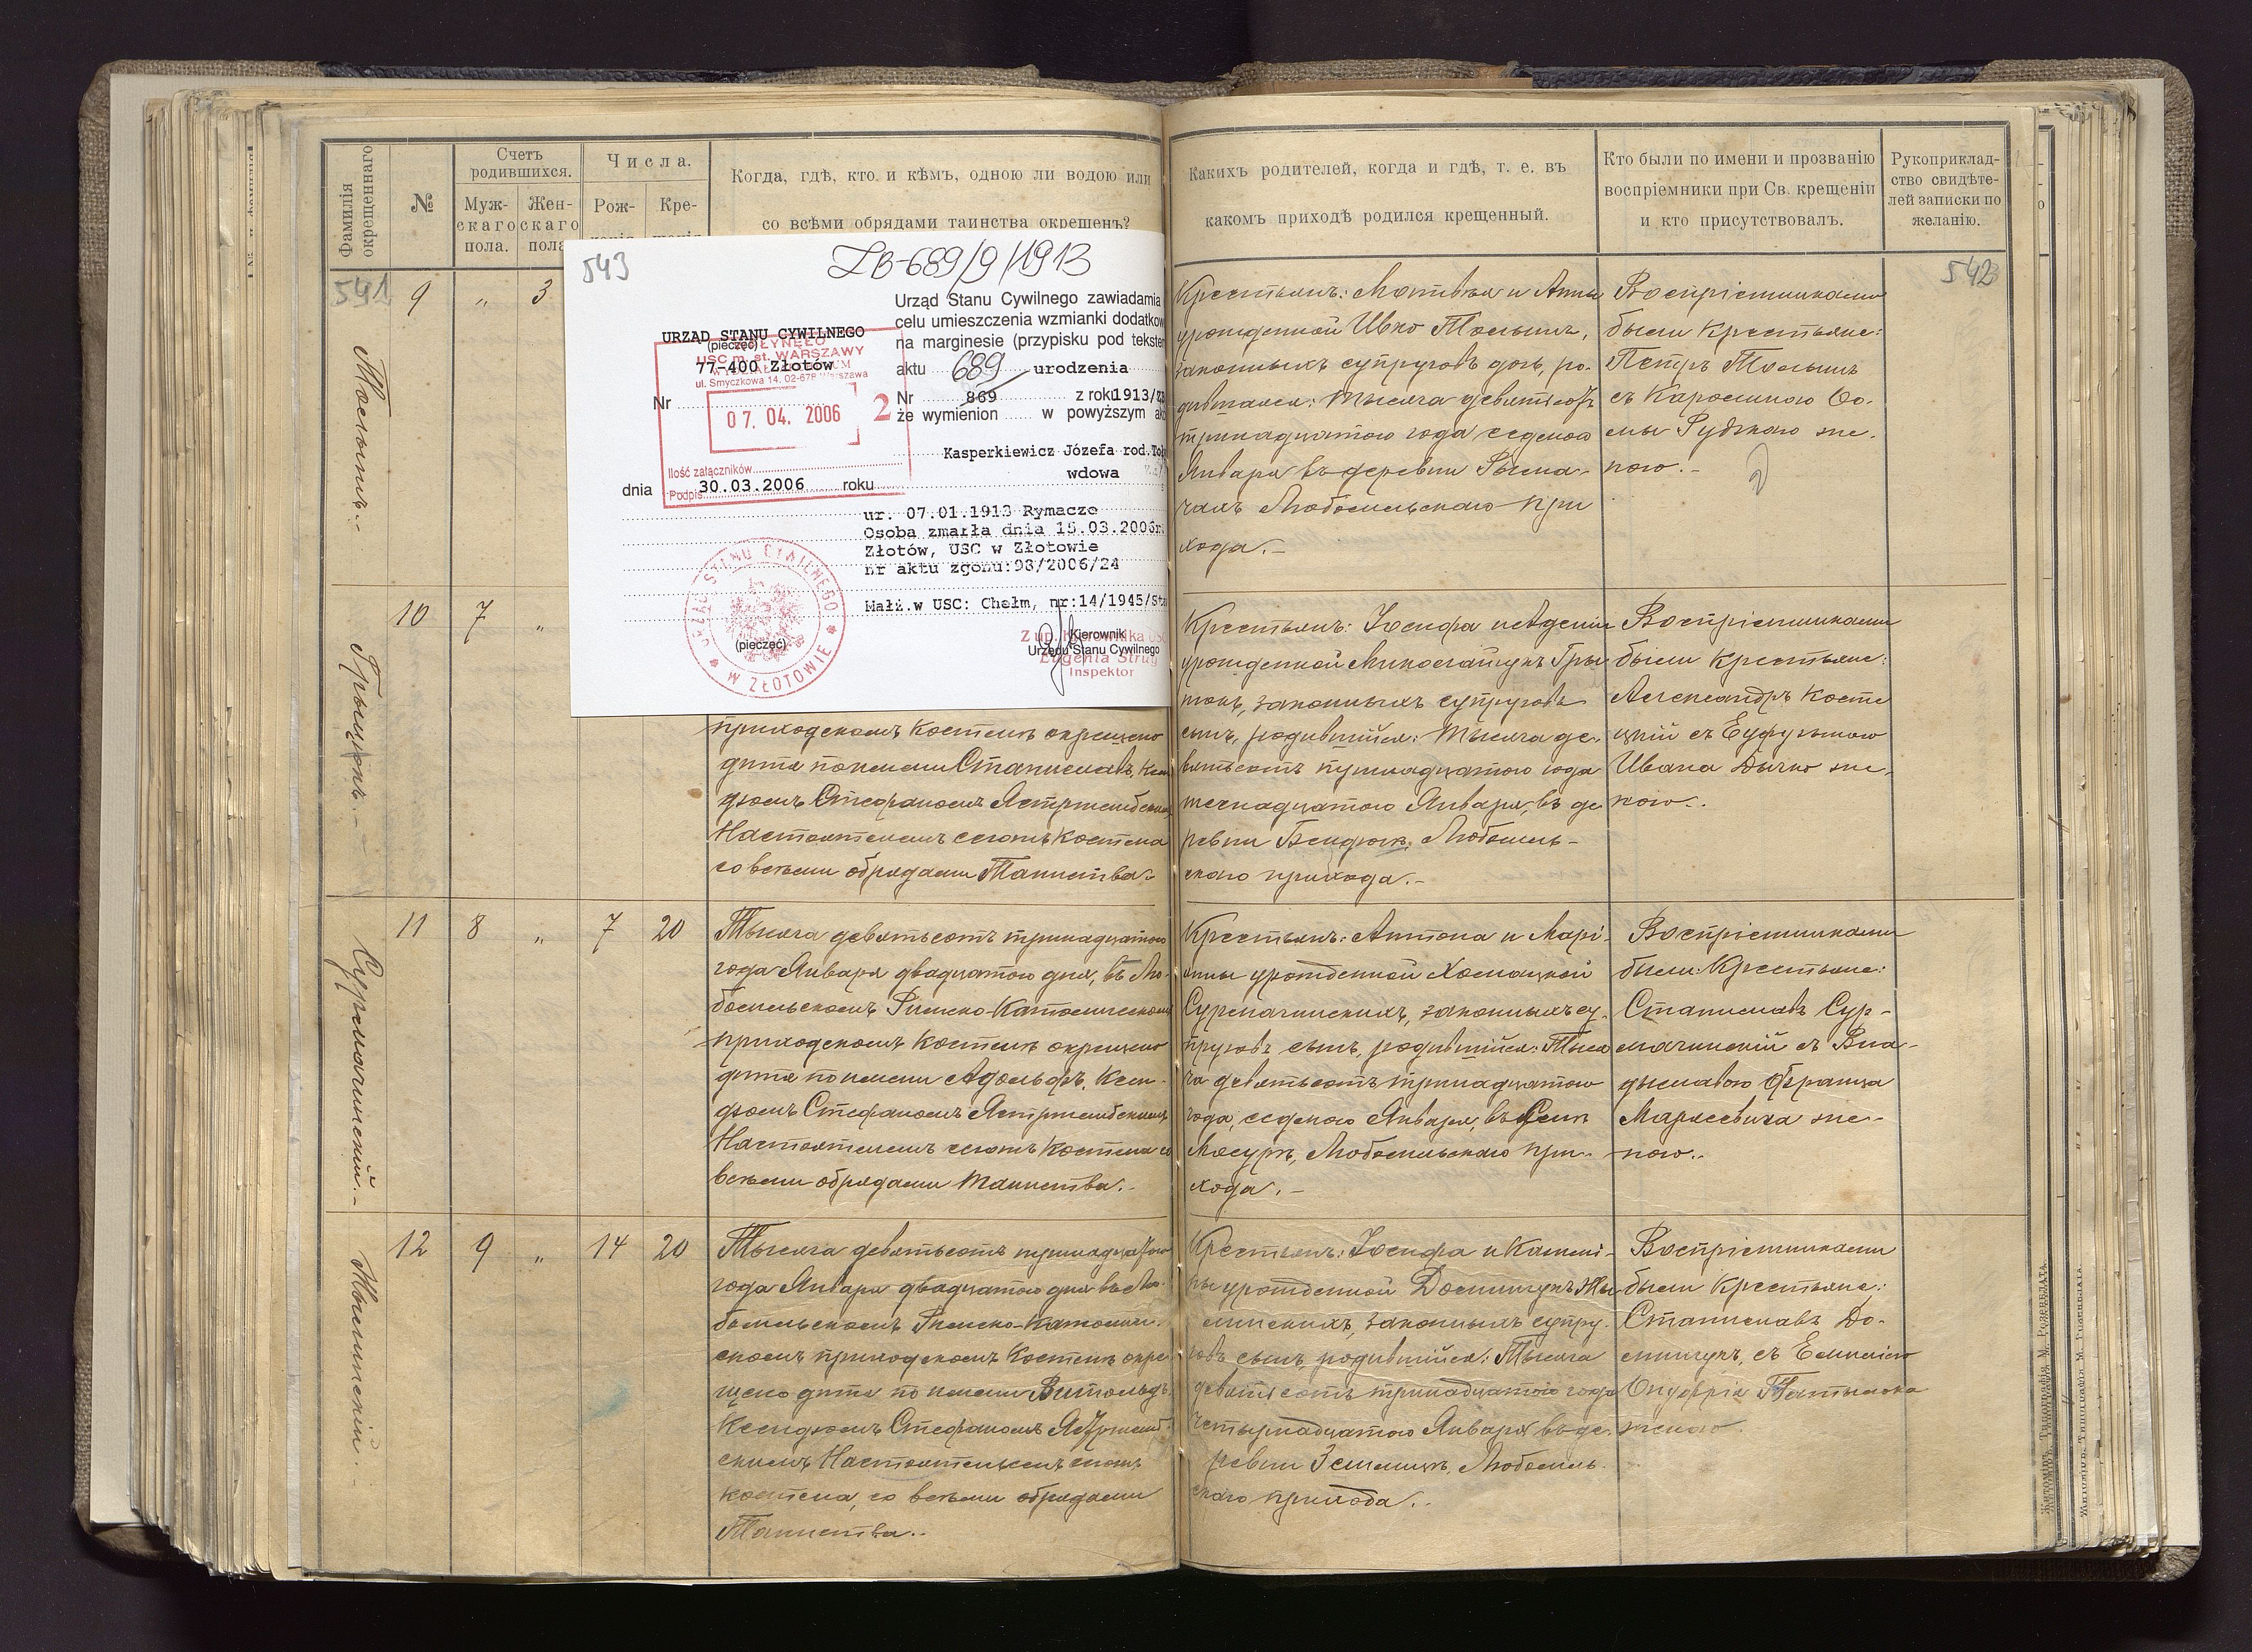 Фамилія окрещеннаго
№
Счетъ родившихся.
Муж-
скаго
пола.
Жен-
скаго
пола
Числа.
Рож-
Кре-
Когда, гдѣ, кто и кѣмъ, одною ли водою или
со всѣми обрядами таинства окрещенъ?
Какихъ родителей, когда и гдѣ, т. е. въ
какомъ приходѣ родился крещенный.
Кто были по имени и прозванію
воспріемники при Св. крещеніи
и кто присутствовалъ.
Рукоприклад-
ство свидѣте-
лей записки по
желанію.
541
9
"
3
543
ZB-689/9/1913
Urząd Stanu Cywilnego zawiadamia
celu umieszczenia wzmianki dodatkow
na marginesie (przypisku pod tekstem
URZĄD STANU CYWILNEGO
(pieczęć)
77-400 Złotów
WPŁYNĘŁO
USC m. st. WARSZAWY
ul. Smyczkowa 14, 02-678 Warszawa
Nr
07. 04. 2006
2
Ilość załączników
Podpis
dnia 30.03.2006 roku
aktu 689 urodzenia
Nr 869 z roku 1913/
że wymienion w powyższym ak
Kasperkiewicz Józefa rod.
wdowa
ur. 07.01.1913 Rymacze
Osoba zmarła dnia 15.03.2006r.
Złotów, USC w Złotowie
nr aktu zgonu:98/2006/24
Małż.w USC: Chełm, nr:14/1945/
URZĄD STANU CYWILNEGO
W ZŁOTOWIE
(pieczęć)
Z up. Kierownika USC
Kierownik
Urzędu Stanu Cywilnego
Eugenia
Inspektor
542
Крестьянъ: Матвѣя и Анны
урожденной Ивко
законныхъ супруговъ дочь, ро-
дившаяся: Тысяча девятьсотъ
тринадцатого года седьмого
Января въ деревни Рыма-
чахъ Любомльскаго при
хода.-
Воспріемниками
были Крестьяне:
Петръ
съ Каролиною
Рудзкаго же-
ною.-
10
7
"
приходскомъ Костелѣ окрещено
дитя по имени Станиславъ, Ксен
дзомъ Стефаномъ Ястржембскимъ
Настоятелемъ сего Костела
со всѣми обрядами Таинства.
Крестьянъ: Іосифа и
урожденной
законныхъ супруговъ
сынъ, родившійся: Тысяча де-
вятьсотъ тринадцатого года
Января, въ де
ревни Любомль-
скаго прихода.-
Воспріемниками
были Крестьяне:
Александръ Косте
цкій съ
Ивана же-
ною.
Сурмачинскій.-
11
8
"
7
20
Тысяча девятьсотъ тринадцатого
года Января двадцатого дня, въ Лю-
бомльскомъ Римско-Католическомъ
приходскомъ Костелѣ окрещено
дитя по имени Адольфъ, Ксен-
дзомъ Стефаномъ Ястржембскимъ
Настоятелемъ сего Костела со
всѣми обрядами Таинства.-
Крестьянъ: Антона и Марі-
анны урожденной
Сурмачинскихъ, законныхъ су-
пруговъ сынъ, родившійся: Тыся
ча девятьсотъ тринадцатого
года, седьмого Января, въ селѣ
Мосурѣ, Любомльскаго при-
хода.-
Воспріемниками
были: Крестьяне:
Станиславъ Сур-
мачинскій съ Вла-
дыславою Франца
же-
ною.
12
9
"
14
20
Тысяча девятьсотъ тринадцатого
года Января двадцатого дня въ Лю-
бомльскомъ Римско-Католиче-
скомъ приходскомъ Костелѣ окре-
щено дитя по имени Витольдъ,
Ксендзомъ Стефаномъ Ястржемб-
скимъ Настоятелемъ сего
костела, со всѣми обрядами
Таинства.
Крестьянъ: Іосифа и
урожденной
законныхъ супру-
говъ сынъ, родившійся: Тысяча
девятьсотъ тринадцатого года
четырнадцатого Января въ де-
ревни Любомль-
скаго прихода.
Воспріемниками
были Крестьяне:
Станиславъ До-
съ
женою.